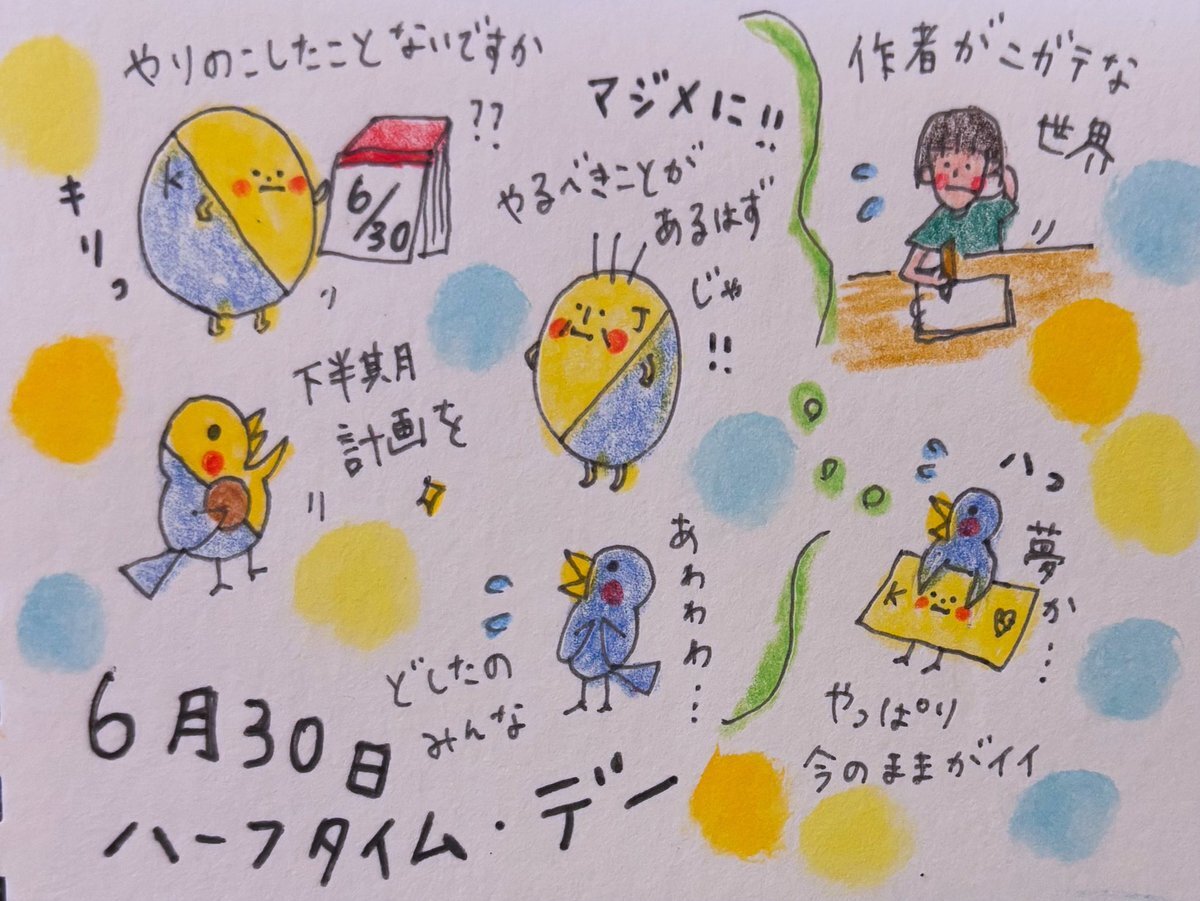 やりのこしたことないですか
??
キリっ
K
6/30
マジメに!!
やるべきことが
あるはず
じゃ
!!
J
下半期月
計画を
あわわわ…
どしたの
みんな
作者がニガテな
世界
ハっ
夢か…
K
やっぱり
今のままがイイ
6月30日
ハーフタイム・デー